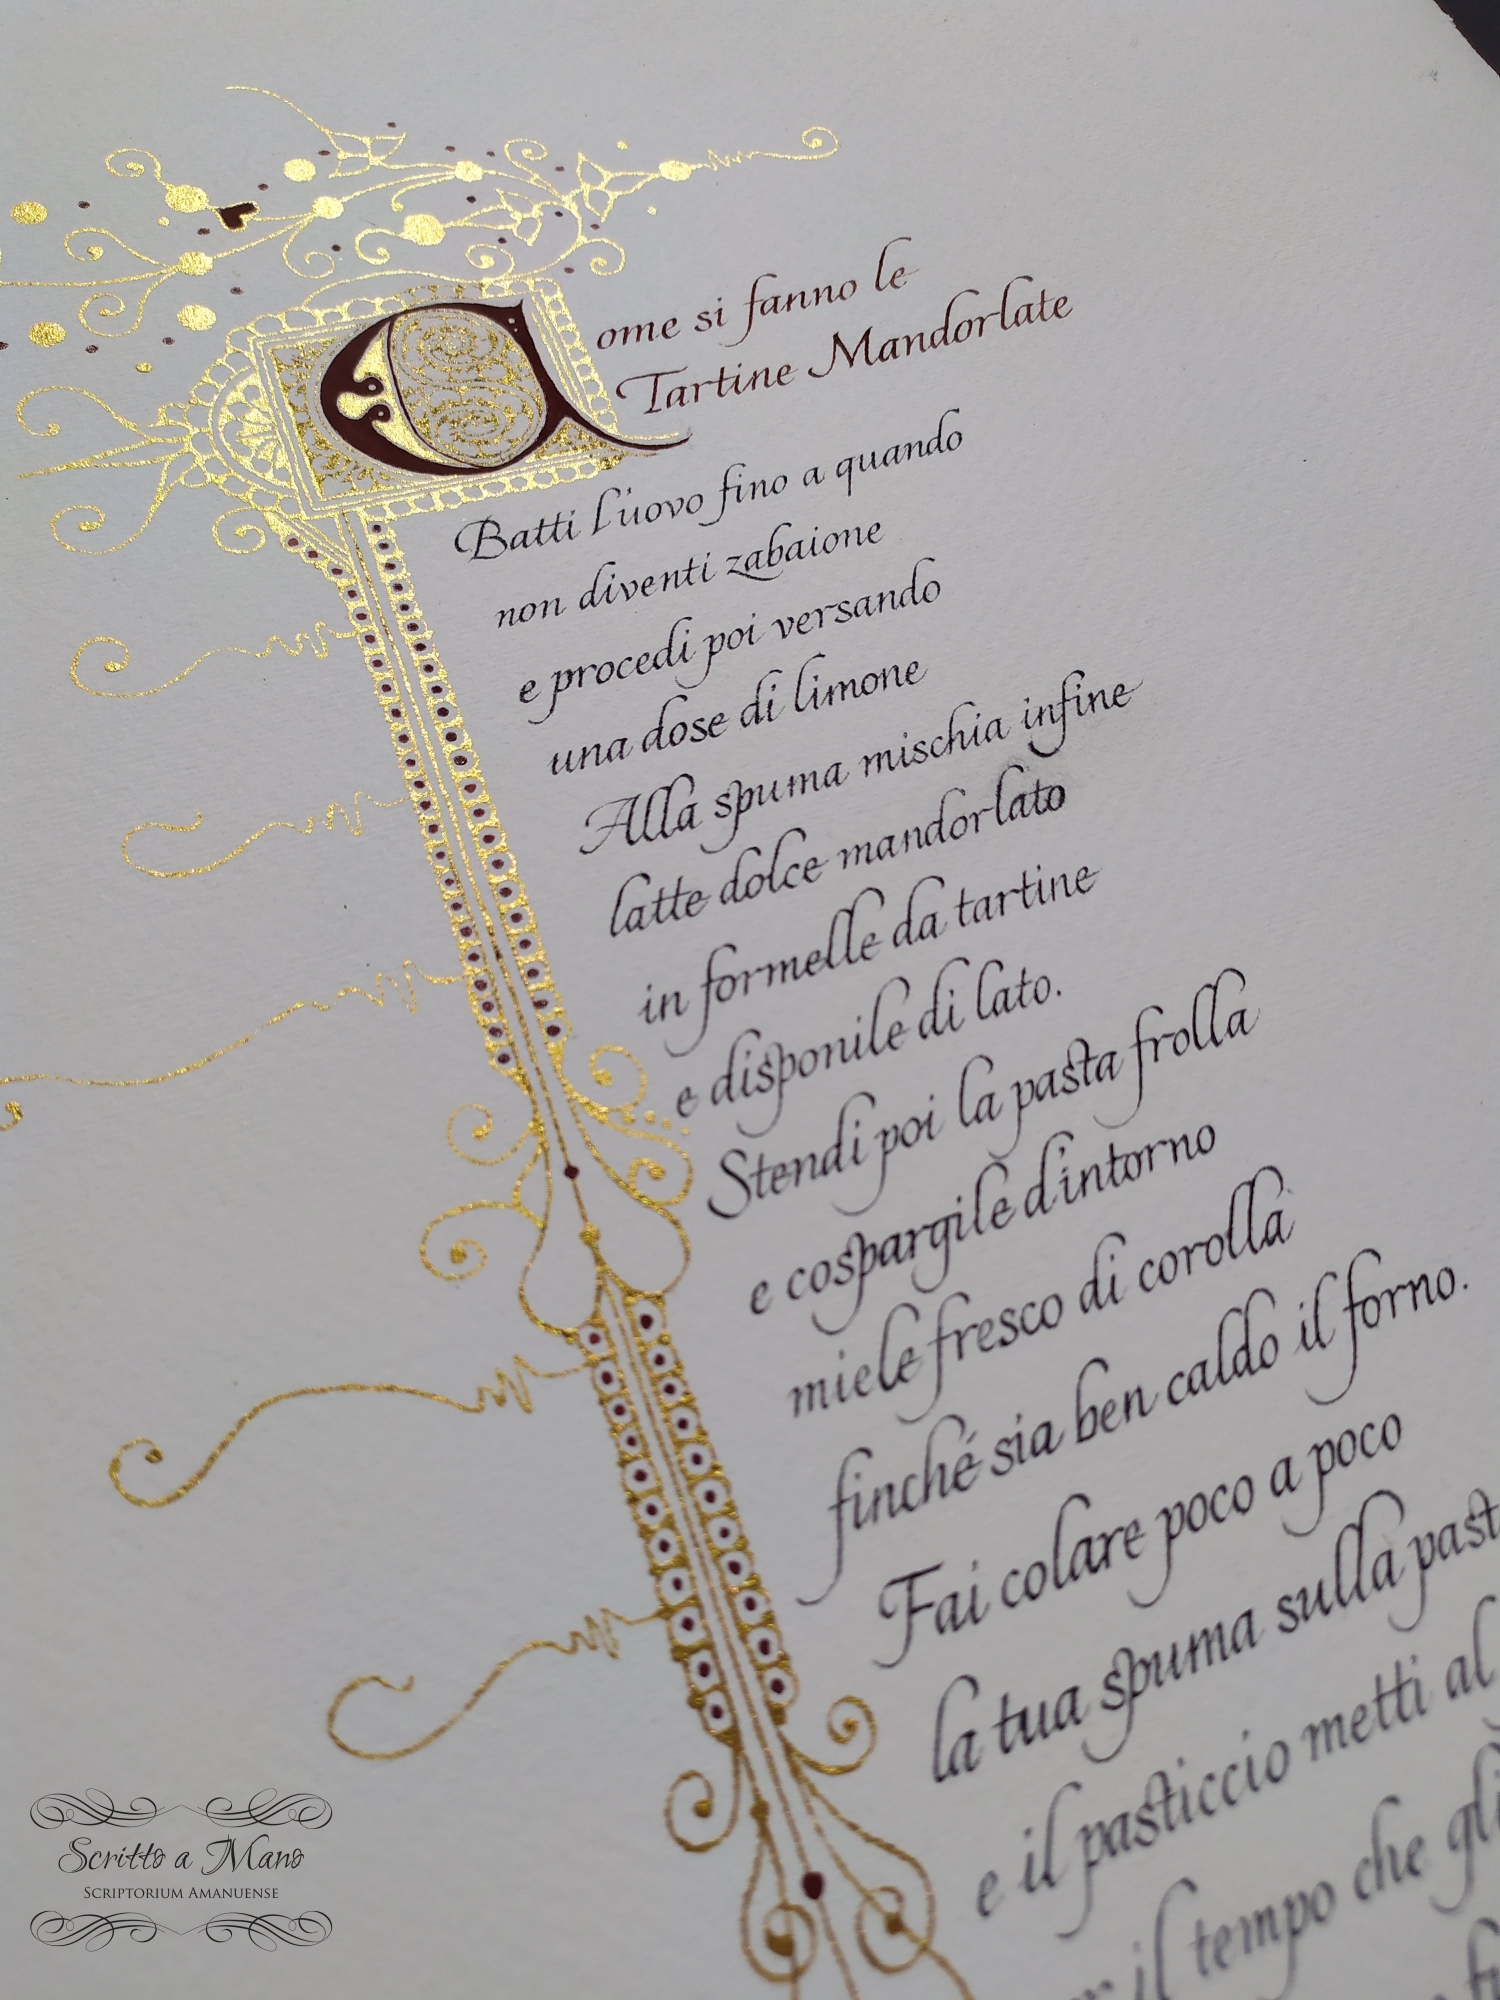 Come si fanno le
Tartine Mandorlate
Batti l'uovo fino a quando
non diventi zabaione
e procedi poi versando
una dose di limone
Alla spuma mischia infine
latte dolce mandorlato
in formelle da tartine
e disponile di lato.
Stendi poi la pasta frolla
e cospargile d'intorno
miele fresco di corolla
finché sia ben caldo il forno.
Fai colare poco a poco
la tua spuma sulla
e il pasticcio metti al
il tempo che
Scritto a Mano
Scriptorium Amanuense